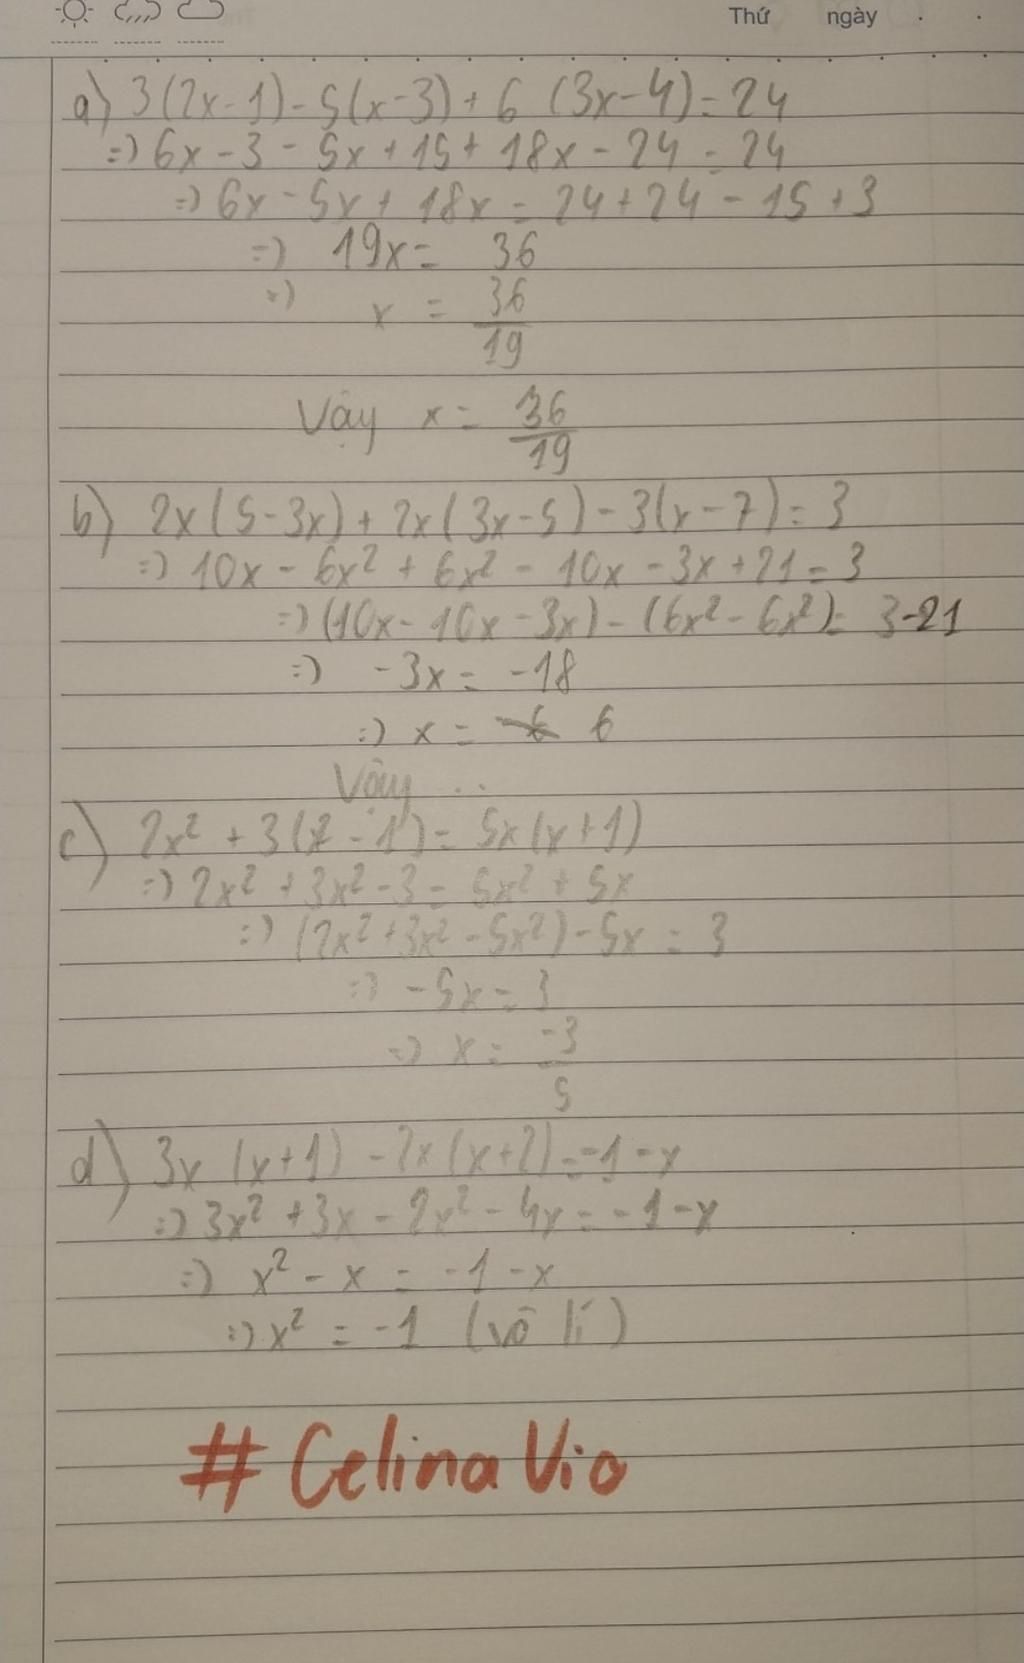 Thứ ngày
a) 3(2x-1)-5(x-3)+6 (3x-4)=24
=> 6x-3-5x+15+18x-24=24
=> 6x-5x+18x=24+24-15+3
=> 19x= 36
=> x = 36/19
Vậy x= 36/19
b) 2x(5-3x)+2x(3x-5)-3(x-7)=3
=> 10x-6x²+6x²-10x-3x+21=3
=> (10x-10x-3x)-(6x²-6x²)= 3-21
=> -3x= -18
=> x= 6
Vậy ..
c) 2x²+3(x²-1)= 5x(x+1)
=> 2x²+3x²-3= 5x²+5x
=> (2x²+3x²-5x²)-5x = 3
=> -5x=3
=> x= -3/5
d) 3x (x+1)-2x(x+2)=-1-x
=> 3x²+3x-2x²-4x=-1-x
=> x²-x=-1-x
=> x² = -1 (vô lí)
# Celina Vio